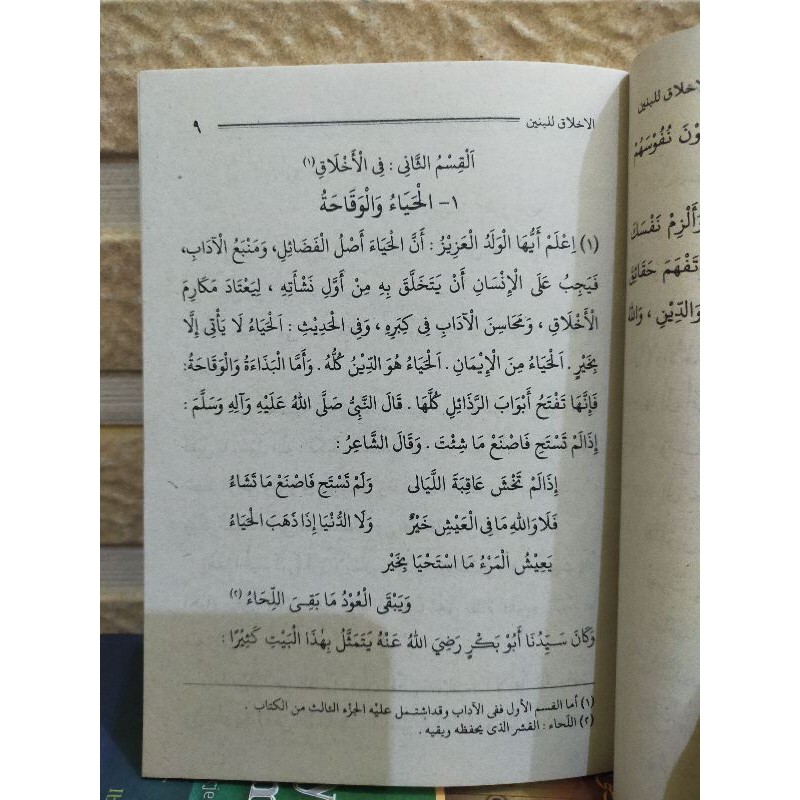 الاخلاق للبنين ٩
اَلْقِسْمُ الثَّانِى : فِى الْأَخْلَاقِ (١)
١- الْحَيَاءُ وَالْوَقَاحَةُ
(١) اِعْلَمْ أَيُّهَا الْوَلَدُ الْعَزِيْزُ : أَنَّ الْحَيَاءَ أَصْلُ الْفَضَائِلِ، وَمَنْبَعُ الْآدَابِ،
فَيَجِبُ عَلَى الْإِنْسَانِ أَنْ يَتَخَلَّقَ بِهِ مِنْ أَوَّلِ نَشْأَتِهِ ، لِيَعْتَادَ مَكَارِمَ
الْأَخْلَاقِ ، وَمَحَاسِنَ الْآدَابِ فِى كِبَرِهِ ، وَفِى الْحَدِيْثِ : اَلْحَيَاءُ لَا يَأْتِى إِلَّا
بِخَيْرٍ . اَلْحَيَاءُ مِنَ الْإِيْمَانِ . اَلْحَيَاءُ هُوَ الدِّيْنُ كُلُّهُ . وَأَمَّا الْبَذَاءَةُ وَالْوَقَاحَةُ:
فَإِنَّهَا تَفْتَحُ أَبْوَابَ الرَّذَائِلِ كُلَّهَا . قَالَ النَّبِىُّ صَلَّى اللهُ عَلَيْهِ وَآلِهِ وَسَلَّمَ :
إِذَالَمْ تَسْتَحِ فَاصْنَعْ مَا شِئْتَ . وَقَالَ الشَّاعِرُ :
إِذَالَمْ تَخْشَ عَاقِبَةَ اللَّيَالِى وَلَمْ تَسْتَحِ فَاصْنَعْ مَا تَشَاءُ
فَلَا وَاللهِ مَا فِى الْعَيْشِ خَيْرٌ وَلَا الدُّنْيَا إِذَا ذَهَبَ الْحَيَاءُ
يَعِيْشُ الْمَرْءُ مَا اسْتَحْيَا بِخَيْرٍ
وَيَبْقَى الْعُوْدُ مَا بَقِىَ اللِّحَاءُ (٢)
وَكَانَ سَيِّدُنَا أَبُوْ بَكْرٍ رَضِيَ اللهُ عَنْهُ يَتَمَثَّلُ بِهٰذَا الْبَيْتِ كَثِيْرًا :
(١) أما القسم الأول ففى الآداب وقد اشتمل عليه الجزء الثالث من الكتاب .
(٢) اللحاء : القشر الذى يحفظه ويقيه .
الاخلاق للبنين
نُفُوْسَهُمْ
وَأَلْزِمْ نَفْسَكَ
تَفْهَمَ حَقَائِقَ
وَالدِّيْنِ ، وَاللهُ